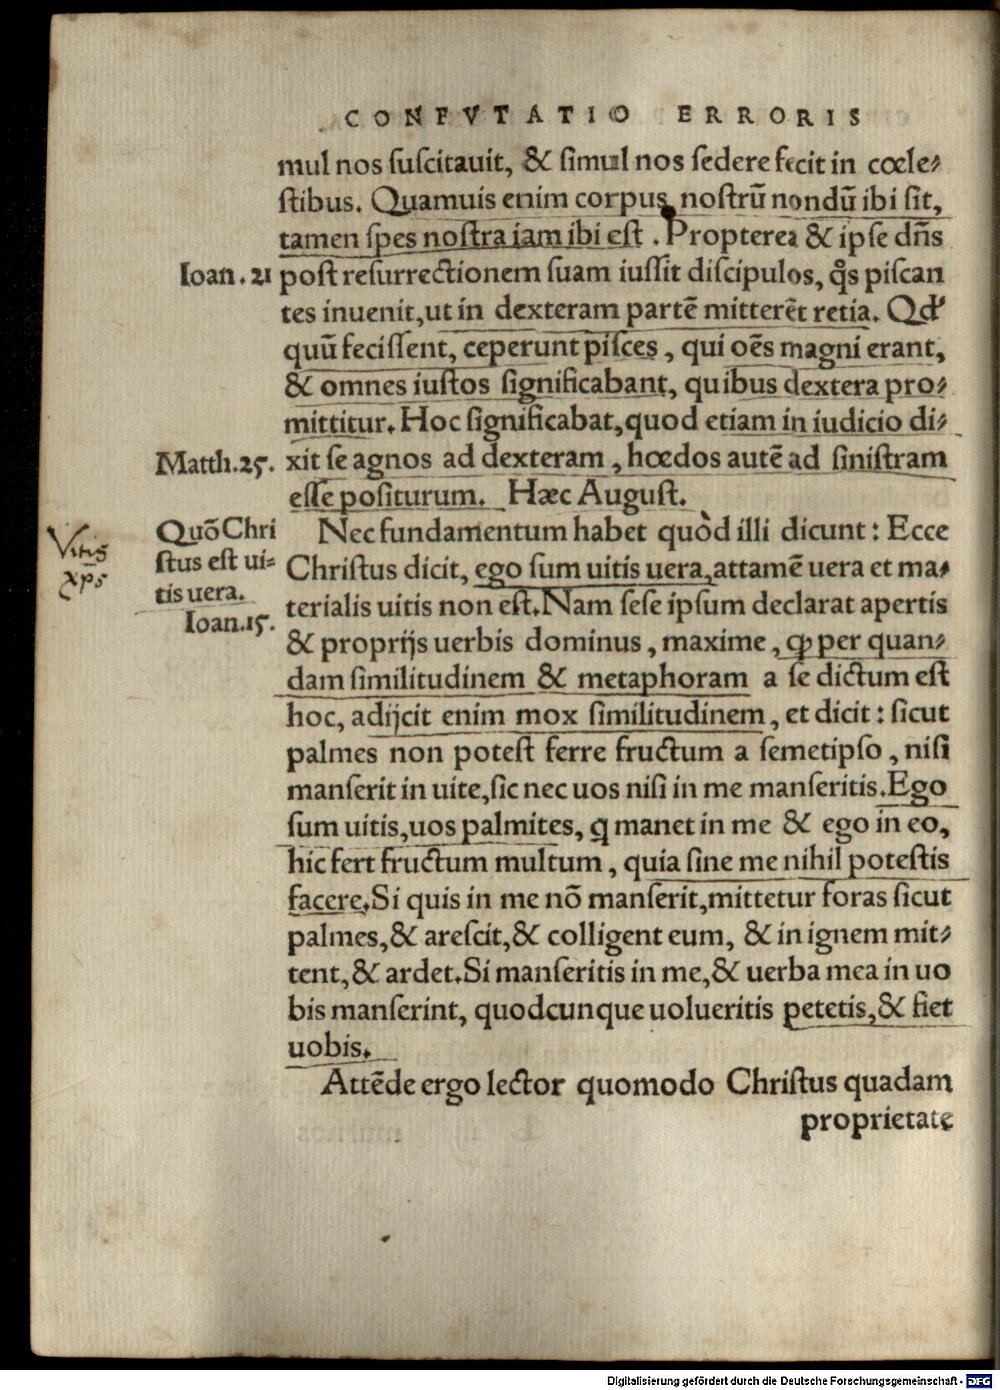 CONFVTATIO ERRORIS
mul nos ſuſcitauit, & ſimul nos ſedere fecit in cœle⸗
ſtibus. Quamuis enim corpus noſtrū nondū ibi ſit,
tamen ſpes noſtra iam ibi eſt . Propterea & ipſe dn̄s
Ioan. 21
poſt reſurrectionem ſuam iuſſit diſcipulos, q̊s piſcan
tes inuenit, ut in dexteram partē mitterēt retia. Qd'
quū feciſſent, ceperunt piſces, qui oēs magni erant,
& omnes iuſtos ſignificabant, quibus dextera pro⸗
mittitur. Hoc ſignificabat, quod etiam in iudicio di⸗
Matth. 25.
xit ſe agnos ad dexteram, hœdos autē ad ſiniſtram
eſſe poſiturum. Hæc Auguſt.
Vitis
xp̄s
Quō Chri
ſtus eſt ui⸗
tis uera.
Ioan. 15.
Nec fundamentum habet quòd illi dicunt: Ecce
Chriſtus dicit, ego ſum uitis uera, attamē uera et ma⸗
terialis uitis non eſt. Nam ſeſe ipſum declarat apertis
& proprijs uerbis dominus, maxime, ꝙ per quan⸗
dam ſimilitudinem & metaphoram a ſe dictum eſt
hoc, adijcit enim mox ſimilitudinem, et dicit: ſicut
palmes non poteſt ferre fructum a ſemetipſo, niſi
manſerit in uite, ſic nec uos niſi in me manſeritis. Ego
ſum uitis, uos palmites, q manet in me & ego in eo,
hic fert fructum multum, quia ſine me nihil poteſtis
facere. Si quis in me nō manſerit, mittetur foras ſicut
palmes, & areſcit, & colligent eum, & in ignem mit⸗
tent, & ardet. Si manſeritis in me, & uerba mea in uo
bis manſerint, quodcunque uolueritis petetis, & fiet
uobis.
Attēde ergo lector quomodo Chriſtus quadam
proprietate
Digitalisierung gefördert durch die Deutsche Forschungsgemeinschaft - DFG